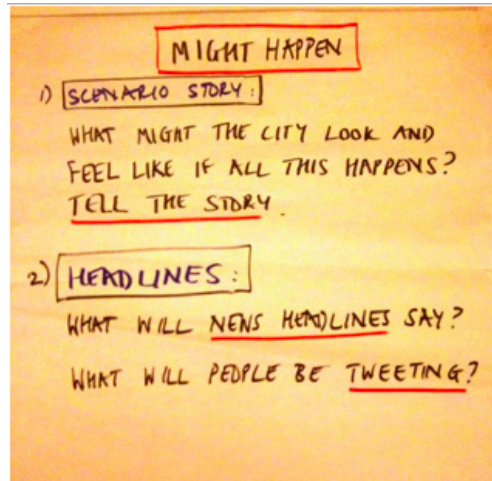 MIGHT HAPPEN
1) SCENARIO STORY:
WHAT MIGHT THE CITY LOOK AND
FEEL LIKE IF ALL THIS HAPPENS?
TELL THE STORY.
2) HEADLINES:
WHAT WILL NEWS HEADLINES SAY?
WHAT WILL PEOPLE BE TWEETING?